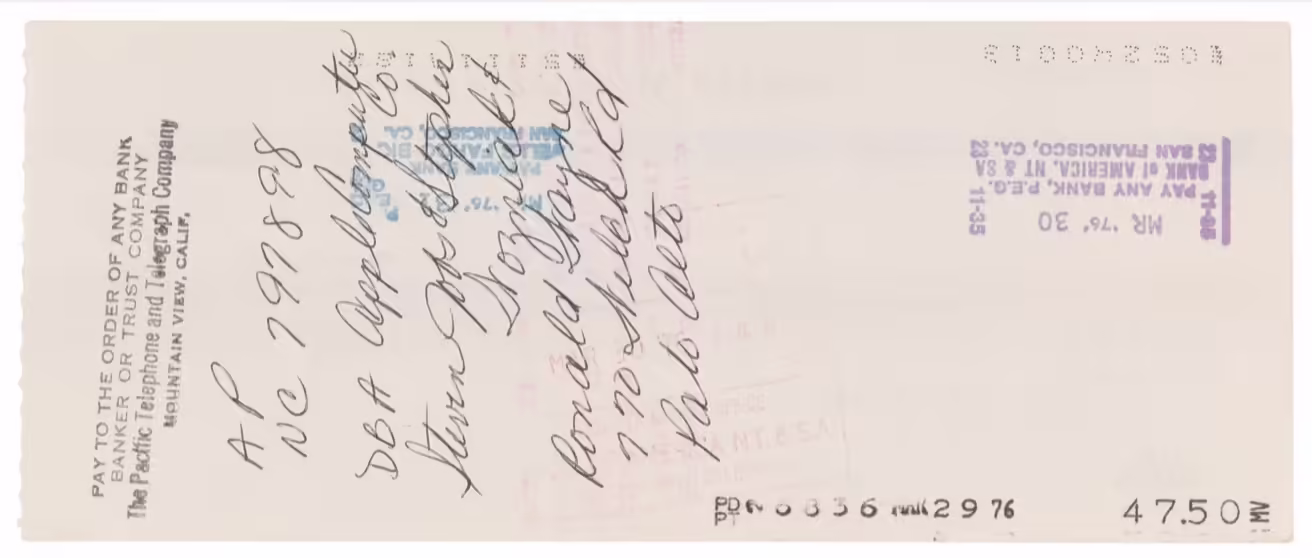 PAY TO THE ORDER OF ANY BANK
BANKER OR TRUST COMPANY
The Pacific Telephone and Telegraph Company
MOUNTAIN VIEW, CALIF.
AP
NC 797898
DBA Apple Computer
Co.
Steven Jobs Stephen
Wozniak &
Ronald Wayne
770 Welch Rd
Palo Alto
MR '76
PAY ANY BANK
WELLS FARGO
SAN FRANCISCO, CA.
11-35 MR '76 30 11-35
PAY ANY BANK, P.E.G.
BANK of AMERICA, NT & SA
23 SAN FRANCISCO, CA. 23
PD
PT
836 29 76
47.50 MV